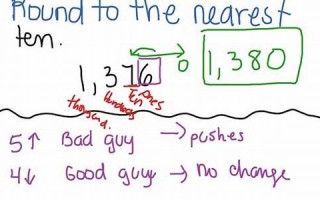 Round to the nearest
ten.
1,376 0 1,380
thousand. Hundreds Ten Ones
5↑ Bad guy → pushes
4↓ Good guy → no change